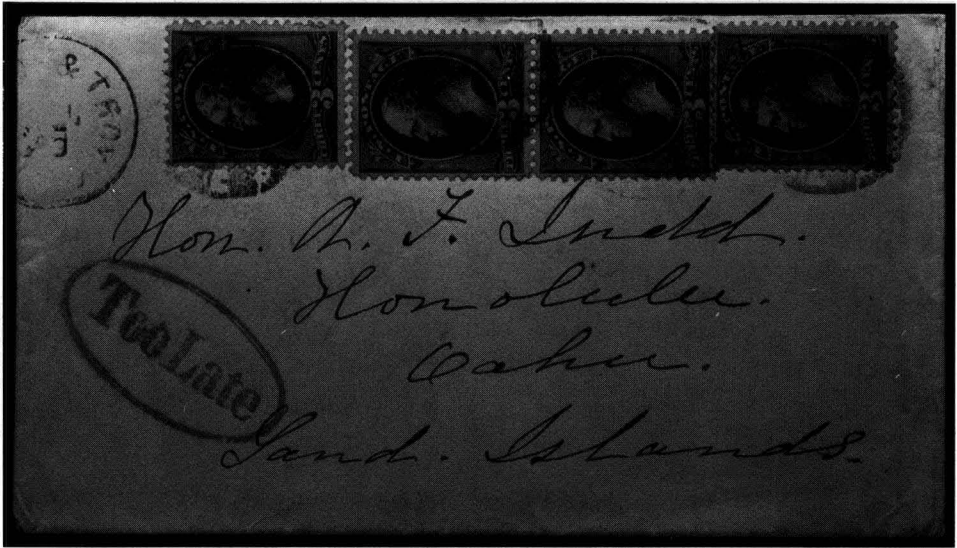 & TROY
Hon. A. F. Judd.
Honolulu.
Oahu.
Sand. Islands.
Too Late